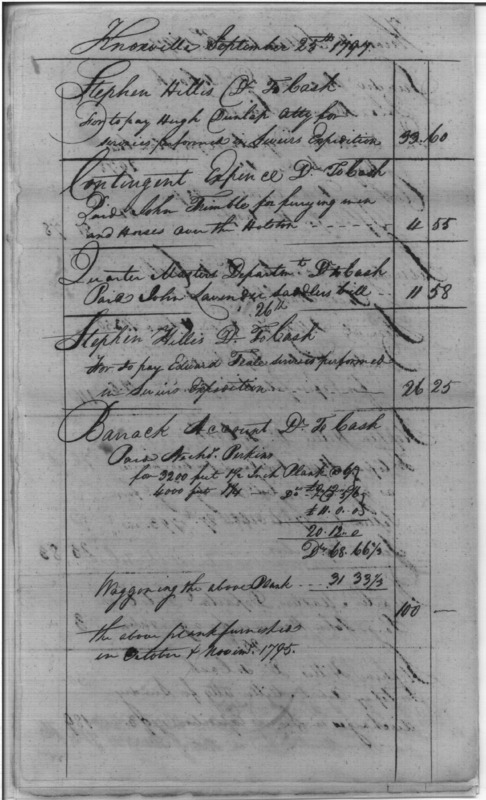 Knoxville September 25th 1797.
Stephen Hillis Dr To Cash
For to pay Hugh Dunlap Atty for
services performed in Seviers Expedition 33.60
Contingent Expence Dr To Cash
Paid John Trimble for ferrying men
and Horses over the Holston 4 55
Quarter Masters Departmt Dr to Cash
Paid John Lavender Saddlers bill 11 58
26th
Stephen Hillis Dr To Cash
For to pay Edward services performed
in Seviers Expedition 26 25
Barrack Account Dr To Cash
Paid Nichs. Perkins
for 3200 feet 1½ Inch Plank @ 6/
4000 feet 1¼
£11.0.0
20.12.0
Drs 68.66⅔
Waggoning the above Plank 31 33⅓
100 —
the above plank furnished
in October & Novemr. 1795.